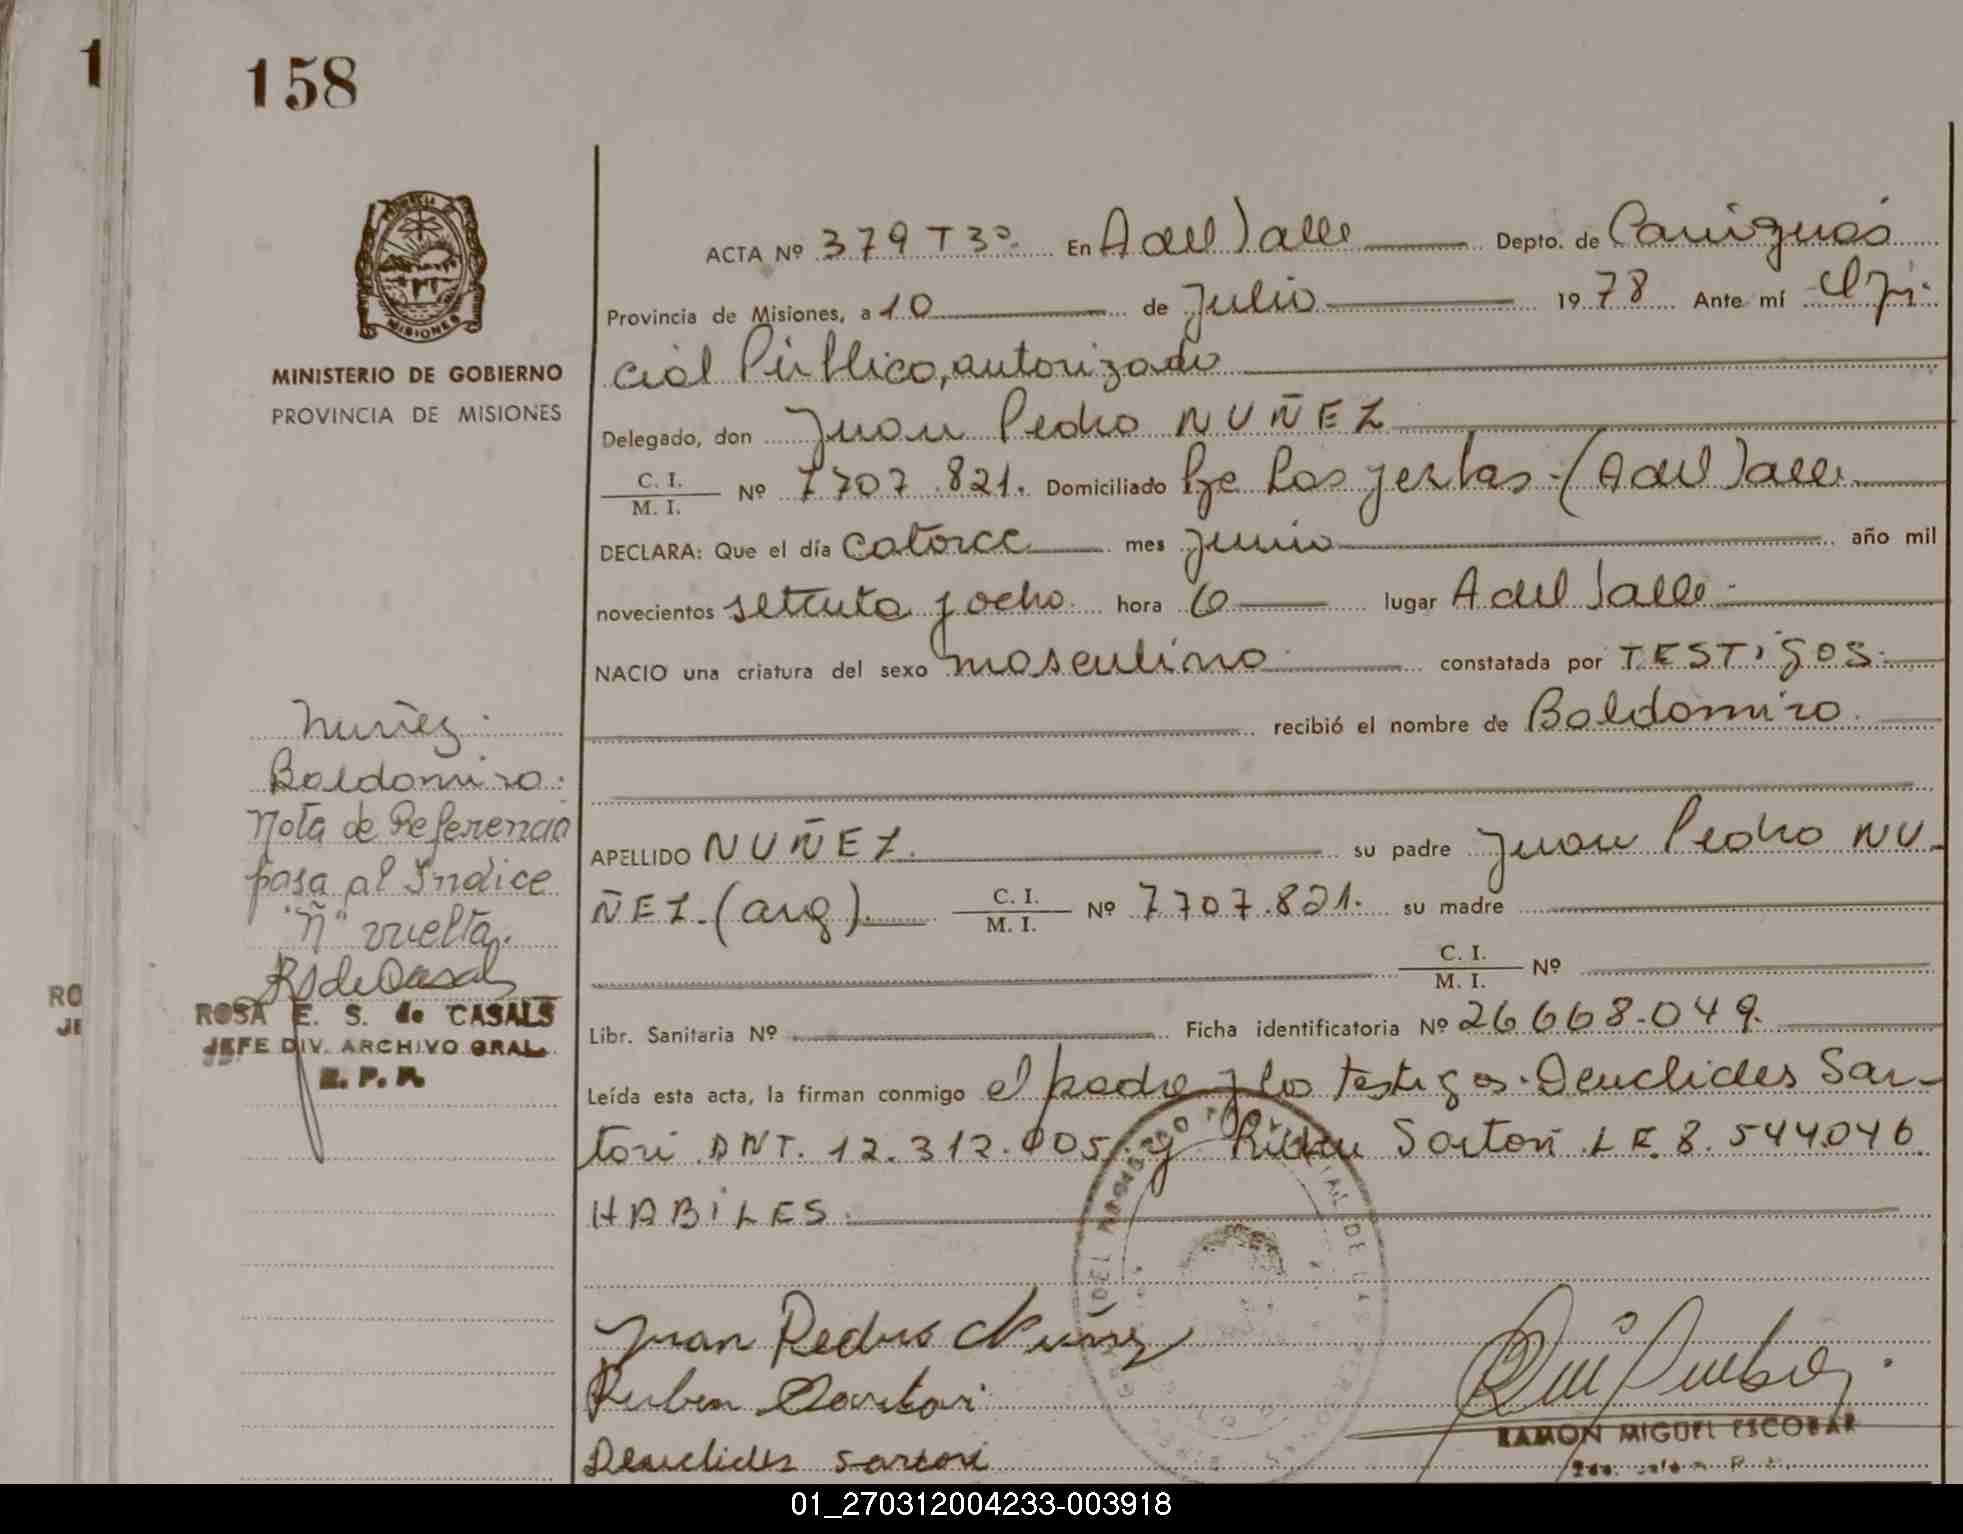 1
158
PROVINCIA
MISIONES
MINISTERIO DE GOBIERNO
PROVINCIA DE MISIONES
ACTA Nº 379 T 3º. En A del Valle Depto. de Cainguás
Provincia de Misiones, a 10 de Julio 1978 Ante mí Ofi-
cial Público, autorizado
Delegado, don Juan Pedro NUÑEZ
C. I.
M. I. Nº 7707.821. Domiciliado Pje Las Yerbas - (A del Valle
DECLARA: Que el día catorce mes junio año mil
novecientos setenta y ocho hora 6 lugar A del Valle
NACIO una criatura del sexo masculino constatada por TESTIGOS
recibió el nombre de Baldomiro
APELLIDO NUÑEZ. su padre Juan Pedro NU-
ÑEZ (arg) C. I.
M. I. Nº 7707.821. su madre
C. I.
M. I. Nº
Libr. Sanitaria Nº Ficha identificatoria Nº 26668.049.
Leída esta acta, la firman conmigo el padre y los testigos. Deuclides Sar-
tori DNI. 12.312.005 y Sartori LE. 8.544.046
HABILES.
Nuñez
Baldomiro.
Nota de Referencia
pasa al Indice
"Ñ" vuelta.
RS de Casals
ROSA E. S. de CASALS
JEFE DIV. ARCHIVO GRAL.
R. P. P.
RO
JE
Juan Pedro Nuñez
Ruben Sartori
Deuclides Sartori
RAMON MIGUEL ESCOBAR
01_270312004233-003918